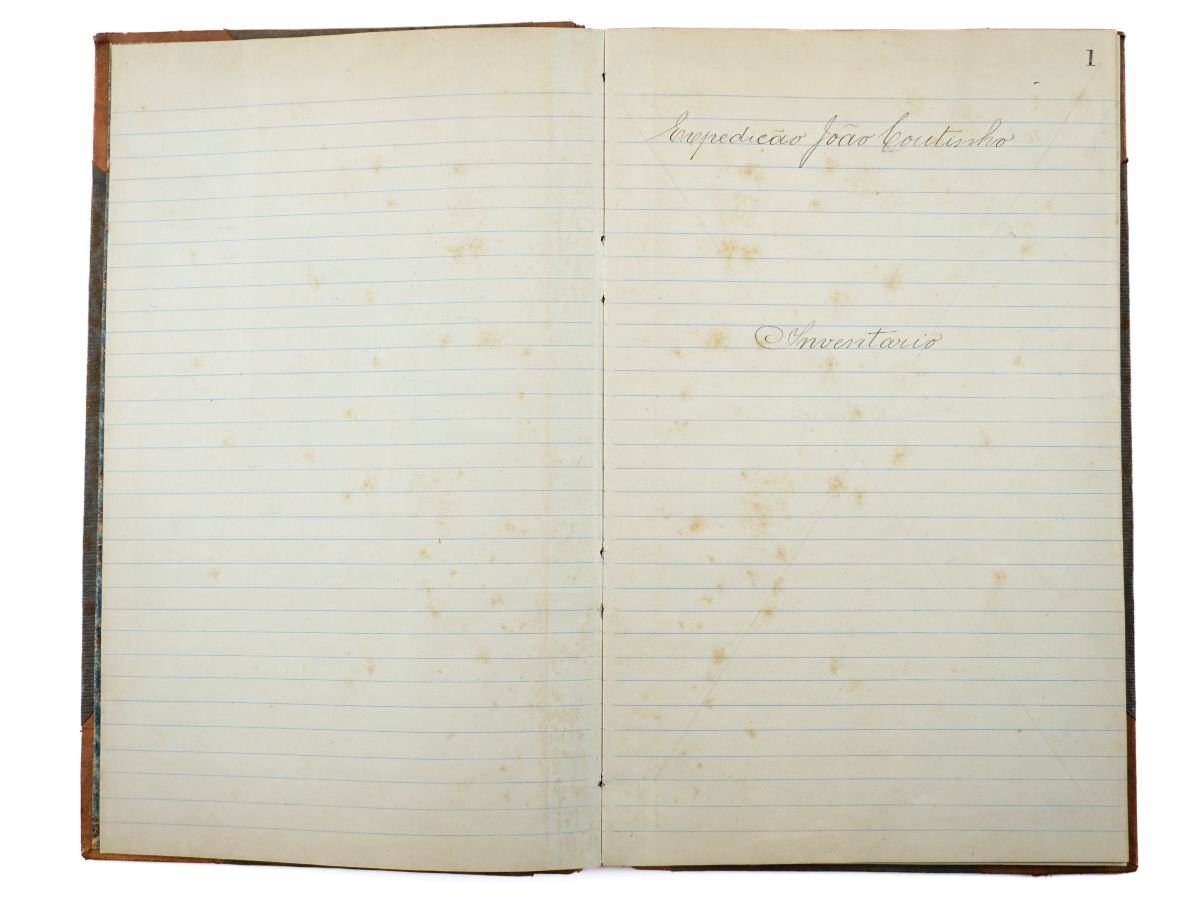 1
Expedição João Coutinho
Inventário